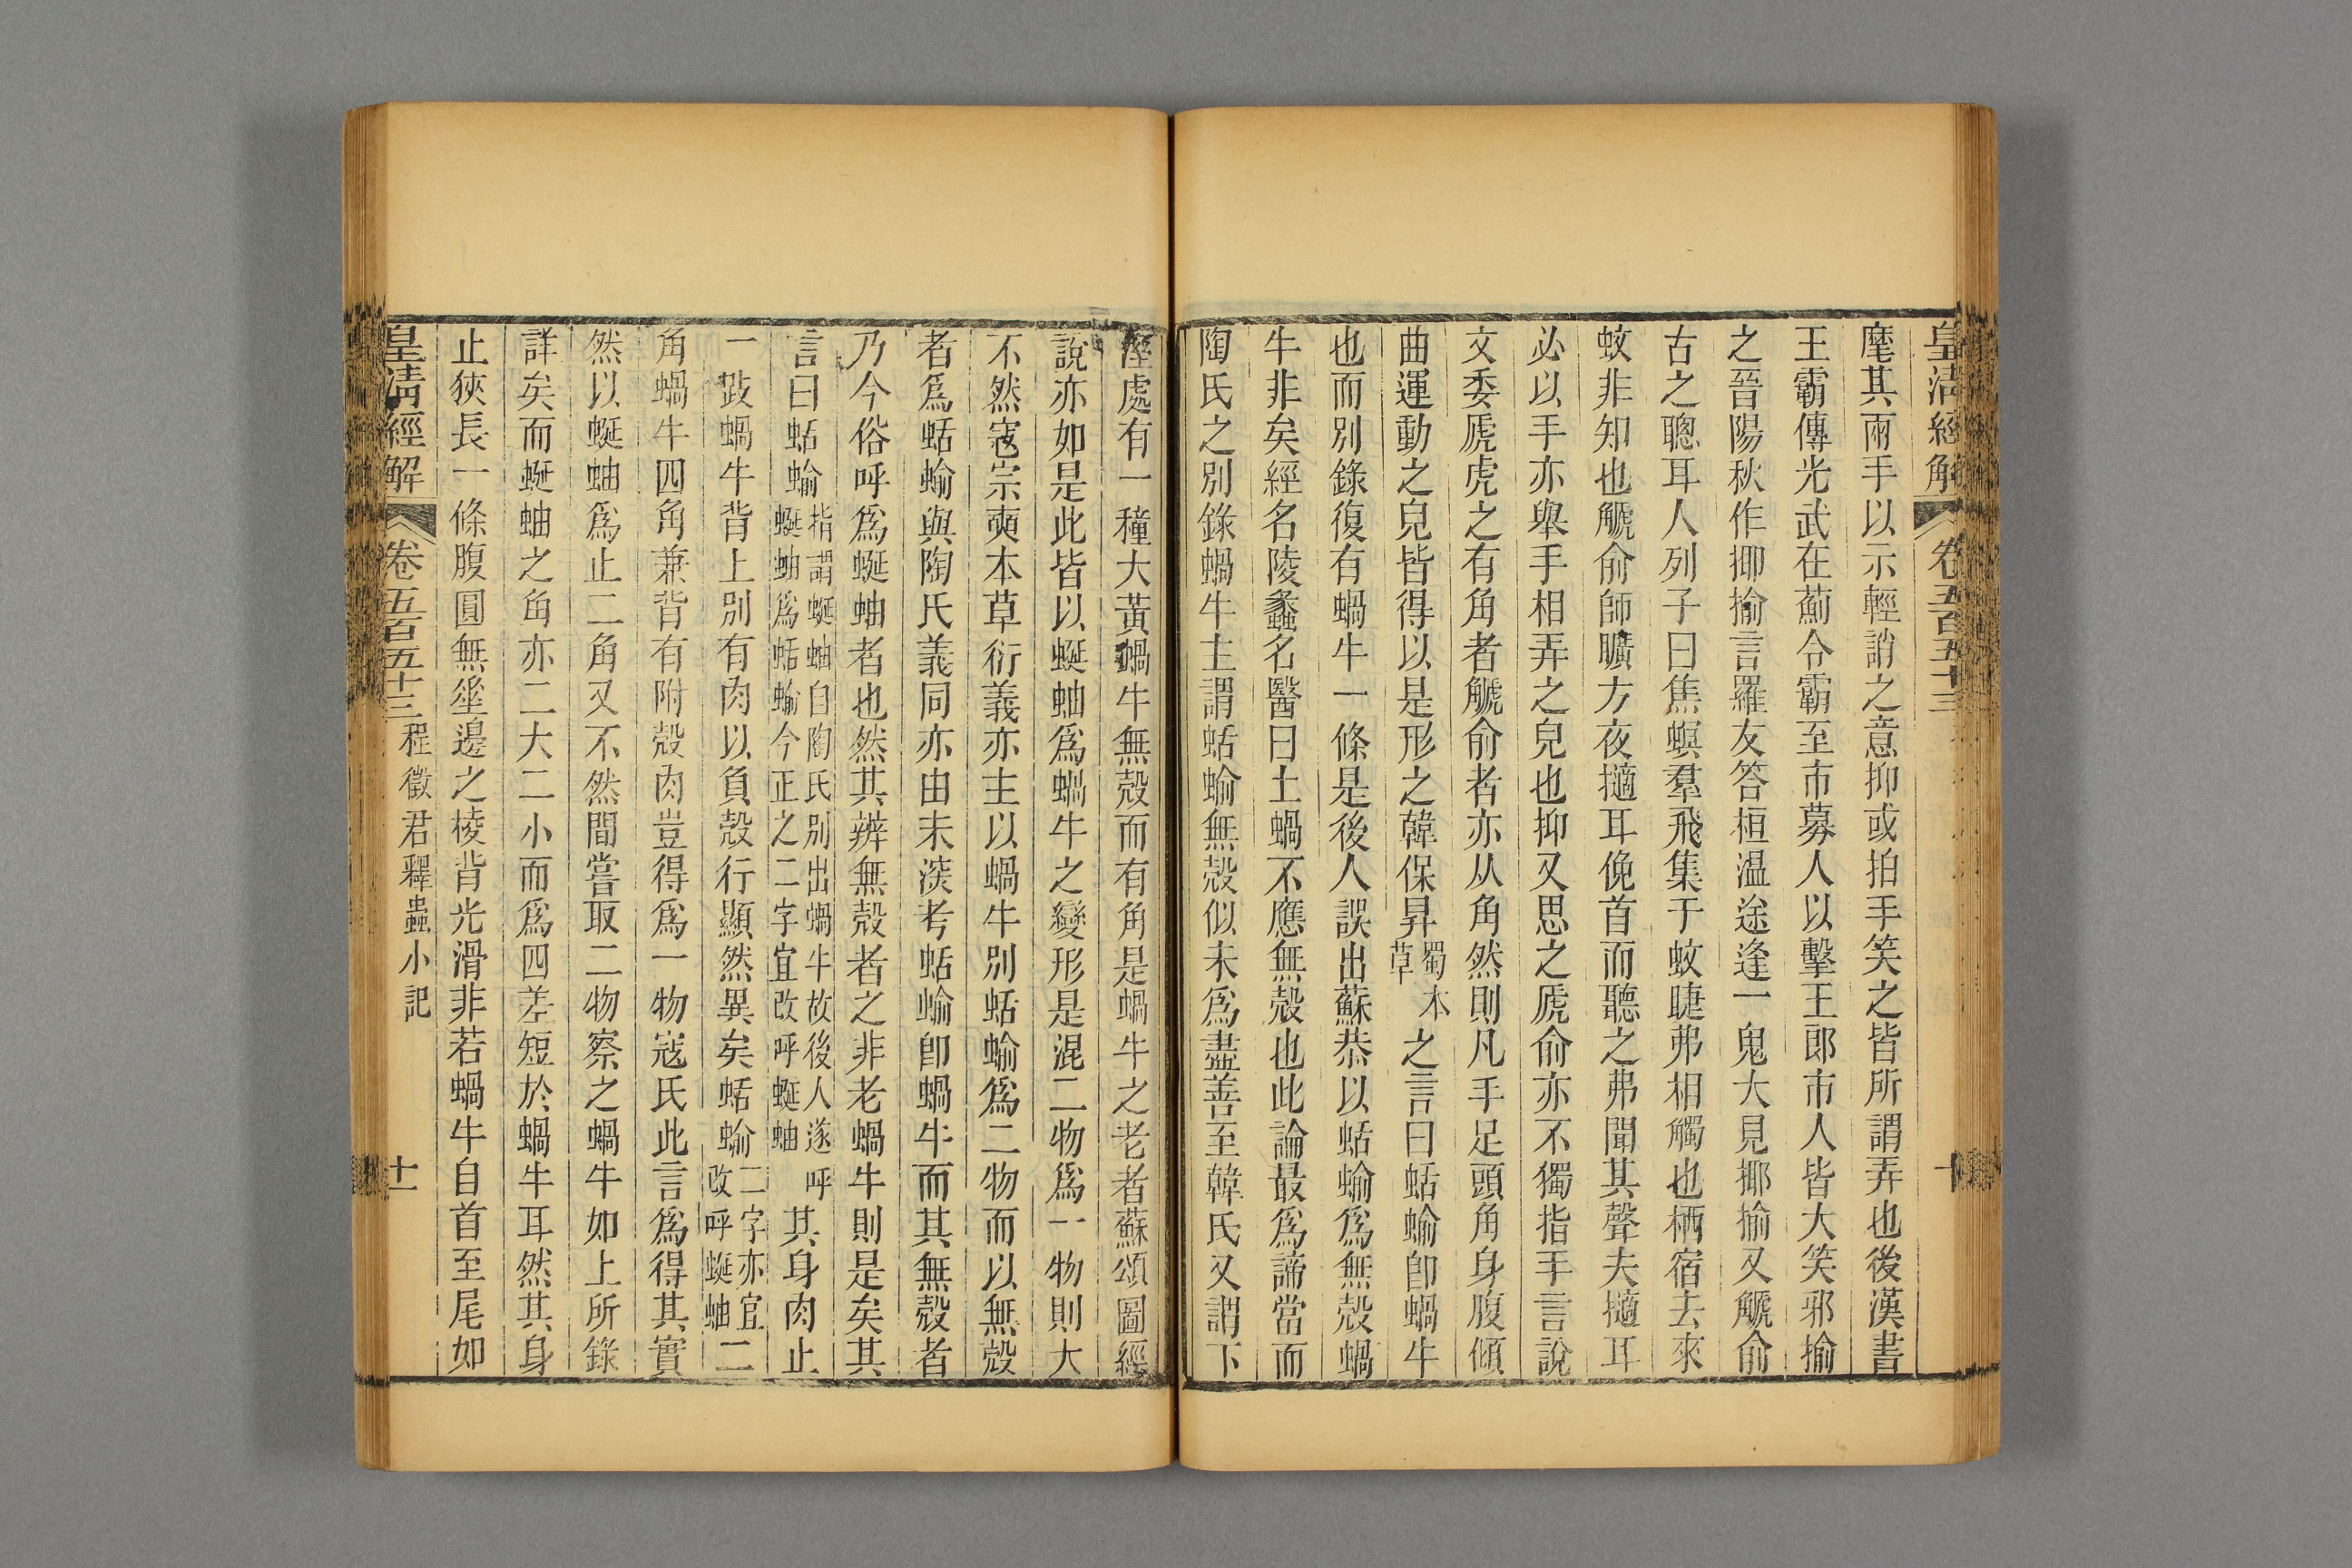 皇清經解 卷五百五十三 十
麾其兩手以示輕誚之意抑或拍手笑之皆所謂弄也後漢書
王霸傳光武在薊令霸至市募人以擊王郎市人皆大笑邪揄
之晉陽秋作揶揄言羅友答桓溫途逢一鬼大見揶揄又觽俞
古之聰耳人列子曰焦螟羣飛集于蚊睫弗相觸也栖宿去來
蚊非知也觽俞師曠方夜擿耳俛首而聽之弗聞其聲夫擿耳
必以手亦舉手相弄之皃也抑又思之虒俞亦不獨指手言說
文委虒虎之有角者觽俞者亦从角然則凡手足頭角身腹傾
曲運動之皃皆得以是形之韓保昇蜀本草之言曰蛞蝓卽蝸牛
也而別錄復有蝸牛一條是後人誤出蘇恭以蛞蝓爲無殼蝸
牛非矣經名陵蠡名醫曰土蝸不應無殼也此論最爲諦當而
陶氏之別錄蝸牛主謂蛞蝓無殼似未爲盡善至韓氏又謂下
溼處有一種大黃蝸牛無殼而有角是蝸牛之老者蘇頌圖經
說亦如是此皆以蜒蚰爲蝸牛之變形是混二物爲一物則大
不然寇宗奭本草衍義亦主以蝸牛別蛞蝓爲二物而以無殼
者爲蛞蝓與陶氏義同亦由未深考蛞蝓卽蝸牛而其無殼者
乃今俗呼爲蜒蚰者也然其辨無殼者之非老蝸牛則是矣其
言曰蛞蝓指謂蜒蚰自陶氏別出蝸牛故後人遂呼蜒蚰爲蛞蝓今正之二字宜改呼蜒蚰其身肉止
一跂蝸牛背上別有肉以負殼行顯然異矣蛞蝓二字亦宜改呼蜒蚰二
角蝸牛四角兼背有附殼肉豈得爲一物寇氏此言爲得其實
然以蜒蚰爲止二角又不然間嘗取二物察之蝸牛如上所錄
詳矣而蜒蚰之角亦二大二小而爲四差短於蝸牛耳然其身
止狹長一條腹圓無垐邊之棱背光滑非若蝸牛自首至尾如
皇清經解 卷五百五十三 程徵君釋蟲小記 十一